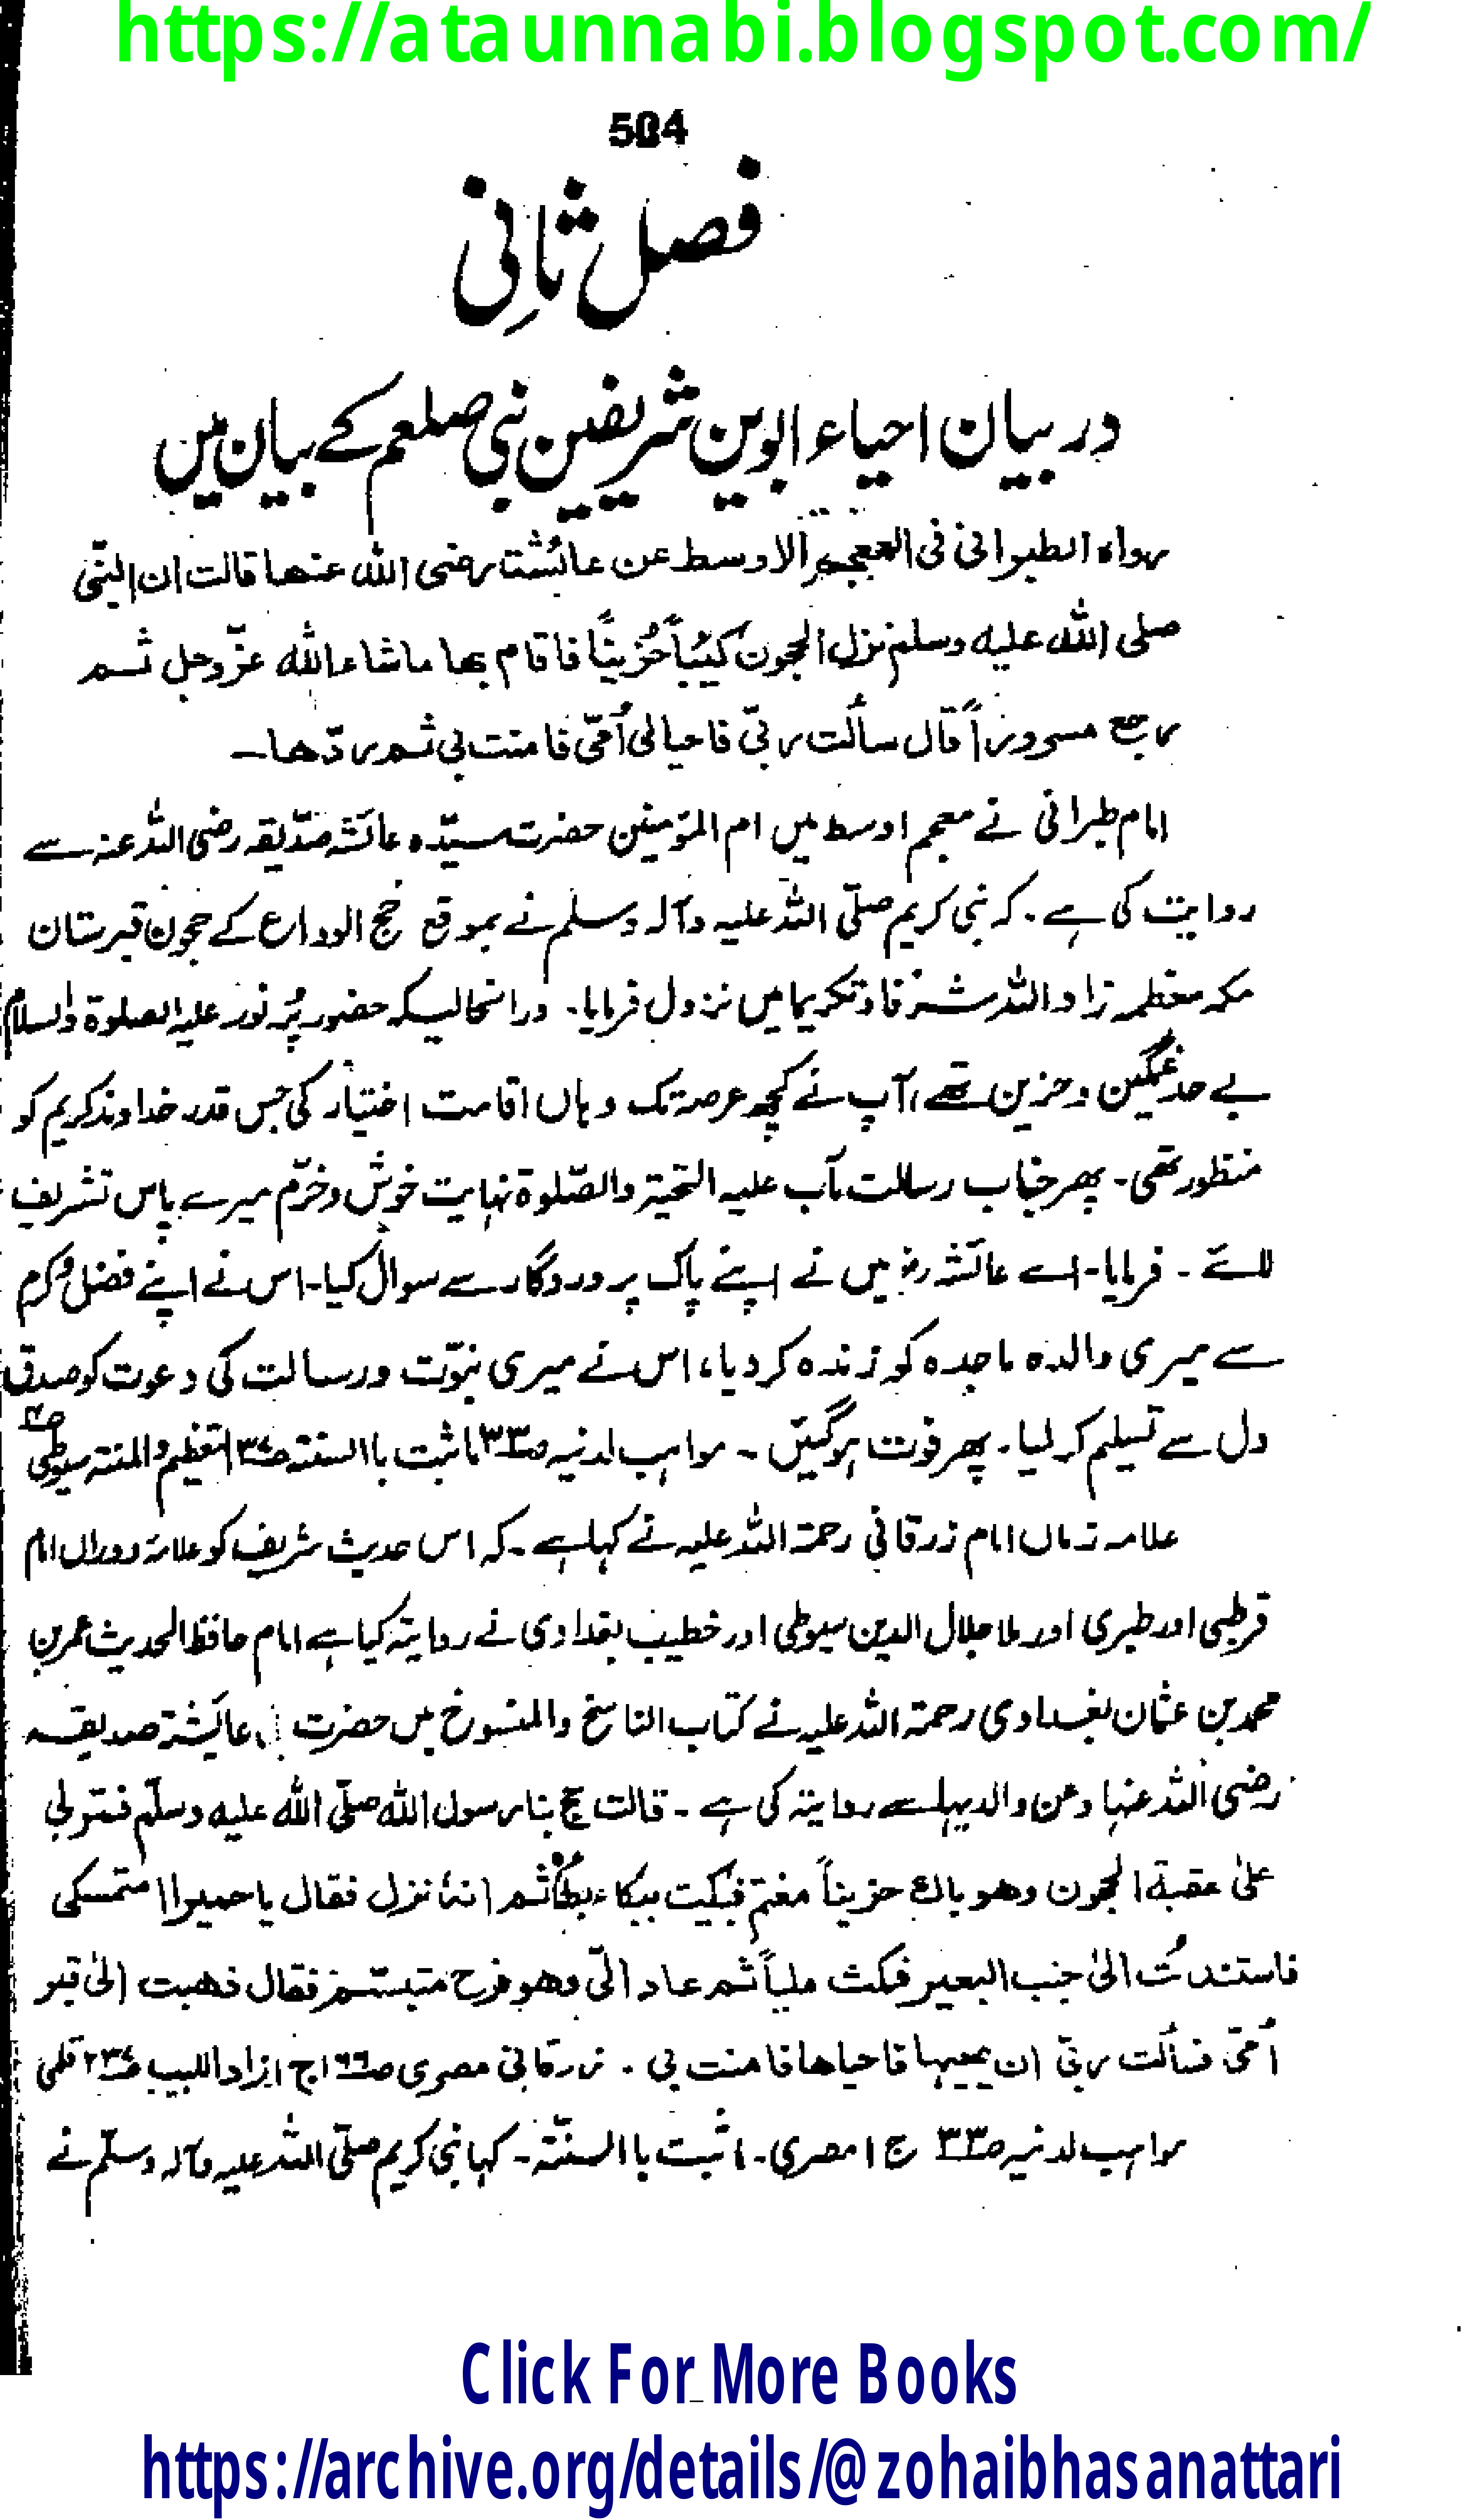 https://ataunnabi.blogspot.com/
504
فصل ثانی
در بیان احیاء ابوین شریفین نبی صلعم کے بیان میں
رواہ الطبرانی فی المعجم الاوسط عن عائشتا رضی اللہ عنھا قالت ان النبّی
صلی اللہ علیہ وسلم نزل الحجون کیٔباً حُزیناً فاقام بھا ماشاءاللہ عزّوجل ثم
رجع مسروراً قال سألت ربّی فاحیالی اُمّی فامنت بی ثم ردّھا۔
امام طبرانی نے معجم اوسط میں ام المؤمنین حضرت سیّدہ عائشہ صدّیقہ رضی اللہ عنہ سے
روایت کی ہے۔ کہ نبی کریم صلّی اللہ علیہ وآلہ وسلم نے بموقع حج الوداع کے حجون قبرستان
مکہ معظمہ زاد اللہ شرفا وتکریما میں نزول فرمایا۔ درانحالیکہ حضور پُر نور علیہ الصلوۃ والسلام
بے حد غمگین وحزین تھے، آپ نے کچھ عرصہ تک وہاں اقامت اختیار کی جس قدر خداوند کریم کو
منظور تھی۔ پھر جناب رسالت مآب علیہ التحیۃ والصّلوۃ نہایت خوش وخرّم میرے پاس تشریف
لائے۔ فرمایا۔ اے عائشہ رض میں نے اپنے پاک پروردگار سے سوال کیا۔ اس نے اپنے فضل وکرم
سے میری والدہ ماجدہ کو زندہ کردیا، اس نے میری نبوّت ورسالت کی دعوت کو صدق
دل سے تسلیم کرلیا۔ پھر فوت ہوگئیں۔ مواہب لدنیہ ص۳۳ ماثبت باالسنتہ ص۳۷ التعظیم والمنتہ سیوطی ص۳
علامہ زماں امام زرقانی رحمۃ اللہ علیہ نے کہا ہے۔ کہ اس حدیث شریف کو علامۂ دوراں امام
قرطبی اور طبری اور ملا جلال الدین سیوطی اور خطیب بغدادی نے روایتہ کیا ہے امام حافظ الحدیث عمر بن
محمد بن عثمان بغدادی رحمۃ اللہ علیہ نے کتاب الناسخ والمنسوخ میں حضرت عائشۃ صدیقہ
رضی اللہ عنہا وعن والدیہا سے روایتہ کی ہے۔ قالت حج بنا رسول اللہ صلّی اللہ علیہ وسلّم فنزل بی
علیٰ عقبۃ الحجون وھو باك حزیناً مغتم فبکیت ببکاءہ ثم انہٗ نزل فقال یاحمیرا استمسکی
فاستندتُ الیٰ جنب البعیر فمکث ملیاً ثم عاد الیّ وھو فرح متبسّم فقال ذھبت الیٰ قبر
اُمّی فسألت ربّی ان یحییہا فاحیاھا فامنت بی۔ زرقانی مصری ص۱۶۶ ج۱ زاد اللبیب ص۲۳۷ قلمی
مواہب لدنیہ ص۳۳ ج۱ مصری۔ ماثبت باالسنّتہ۔ کہا نبی کریم صلّی اللہ علیہ وآلہ وسلّم نے
Click For More Books
https://archive.org/details/@zohaibhasanattari